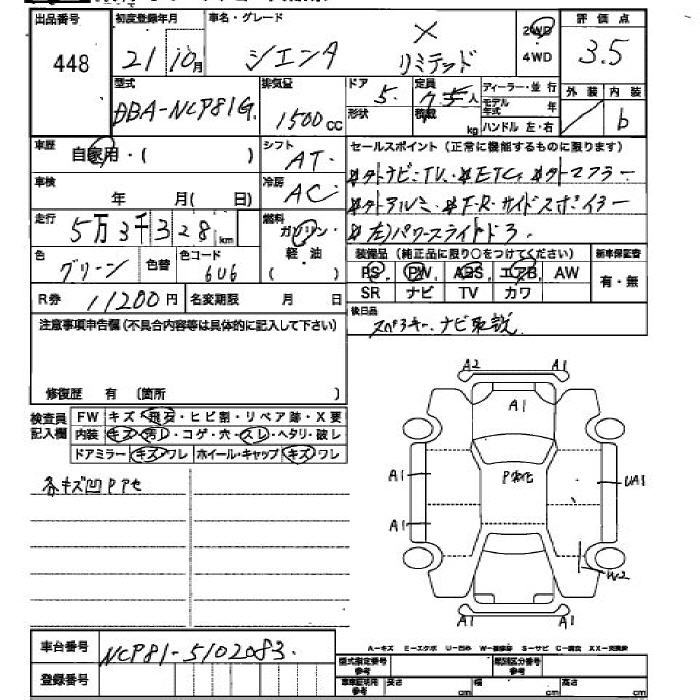 出品番号 初度登録年月 車名・グレード 評価点
448 21 10月 シエンタ X リミテッド 2WD 4WD 3.5
型式 排気量 ドア 定員 ディーラー・並行 外装 内装
DBA-NCP81G 1500cc 5 7 人 モデル年式 年 b
形状 積載 kg ハンドル 左・右
車歴 自家用・( ) シフト AT セールスポイント(正常に機能するものに限ります)
車検 年 月( 日) 冷房 AC 外ナビ・TV ETC 外マフラー
走行 5万3千328km 燃料 ガソリン・軽油 ( ) 外アルミ F・R・サイドスポイラー
左)パワースライドドア
色 グリーン 色替 色コード 6U6 装備品(純正品に限り○をつけてください) 新車保証書
PS PW ABS エアB AW 有・無
R券 11200円 名変期限 月 日 SR ナビ TV カワ
注意事項申告欄(不具合内容等は具体的に記入して下さい) 後日品
スペアキー、ナビ取説
修復歴 有 〔箇所 〕
検査員記入欄 FW キズ・飛石・ヒビ割・リペア跡・X要
内装 キズ・汚れ・コゲ・穴・スレ・ヘタリ・破レ
ドアミラー キズ・ワレ ホイール・キャップ キズ・ワレ
各キズ凹PPセ
A2 A1
A1
A1 P劣化 UA1
A1
W2
A1 A1
車台番号 NCP81-5102083
登録番号
A-キズ E-エクボ U-凹み W-補修跡 S-サビ C-腐食 XX-交換跡
型式指定番号 参考 類別区分番号 参考
車車証明用 参考 長さ cm 幅 cm 高さ cm